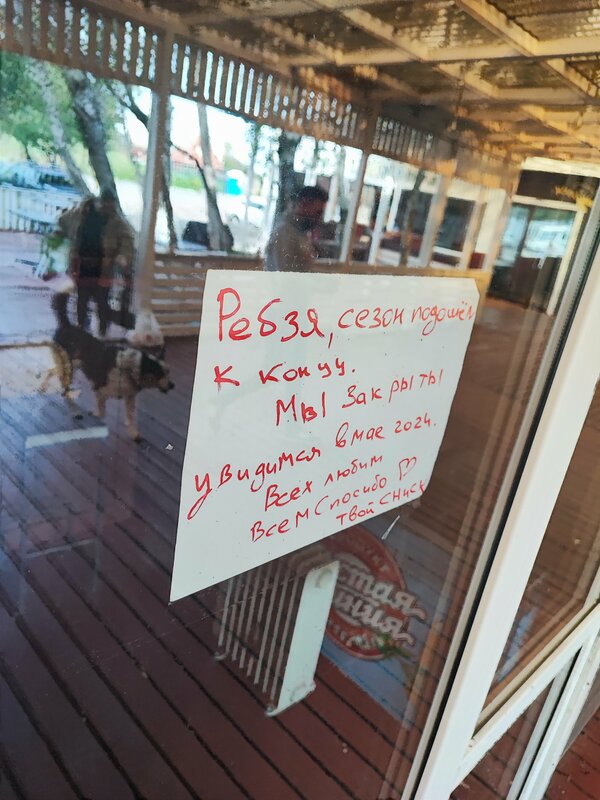 Ребзя, сезон подошёл
к концу.
Мы закрыты
увидимся в мае 2024.
Всех любим
Всем Спосибо
твой СНиСК
стая
иния